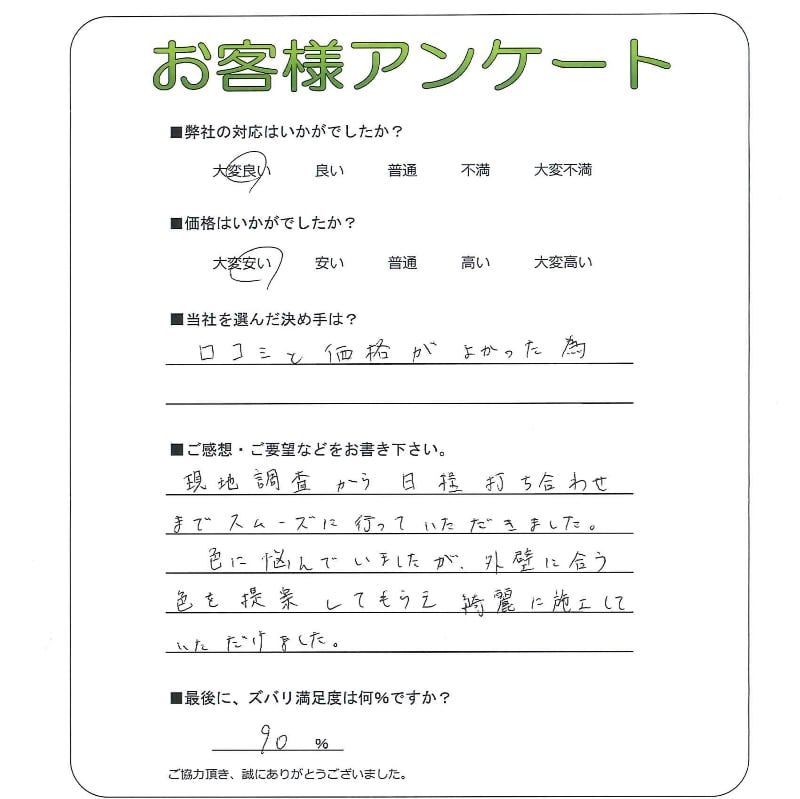 お客様アンケート
■弊社の対応はいかがでしたか？
大変良い 良い 普通 不満 大変不満
■価格はいかがでしたか？
大変安い 安い 普通 高い 大変高い
■当社を選んだ決め手は？
口コミと価格がよかった為
■ご感想・ご要望などをお書き下さい。
現地調査から日様打ち合わせ
までスムーズに行っていただきました。
色に悩んでいましたが、外壁に合う
色を提案してもらえ綺麗に施工して
いただけました。
■最後に、ズバリ満足度は何％ですか？
90 %
ご協力頂き、誠にありがとうございました。